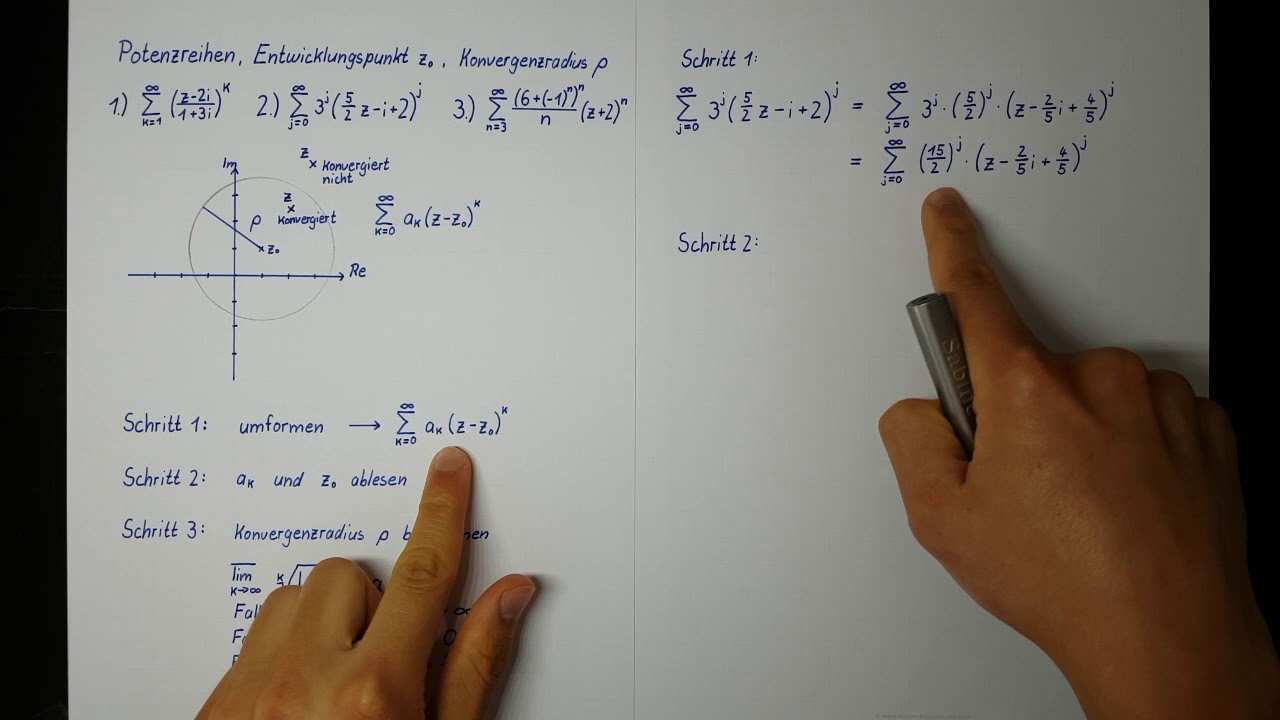 Potenzreihen, Entwicklungspunkt z₀, Konvergenzradius ρ
1.) ∑_{k=1}^{∞} ((z-2i)/(1+3i))^k 2.) ∑_{j=0}^{∞} 3^j (5/2 z-i+2)^j 3.) ∑_{n=3}^{∞} (6+(-1)^n)^n/n (z+2)^n
Im
z
× konvergiert
nicht
z
× konvergiert
ρ
z₀
Re
∑_{k=0}^{∞} a_k (z-z₀)^k
Schritt 1: umformen → ∑_{k=0}^{∞} a_k (z-z₀)^k
Schritt 2: a_k und z₀ ablesen
Schritt 3: Konvergenzradius ρ
lim k→∞
Schritt 1:
∑_{j=0}^{∞} 3^j (5/2 z-i+2)^j = ∑_{j=0}^{∞} 3^j · (5/2)^j · (z - 2/5 i + 4/5)^j
= ∑_{j=0}^{∞} (15/2)^j · (z - 2/5 i + 4/5)^j
Schritt 2: